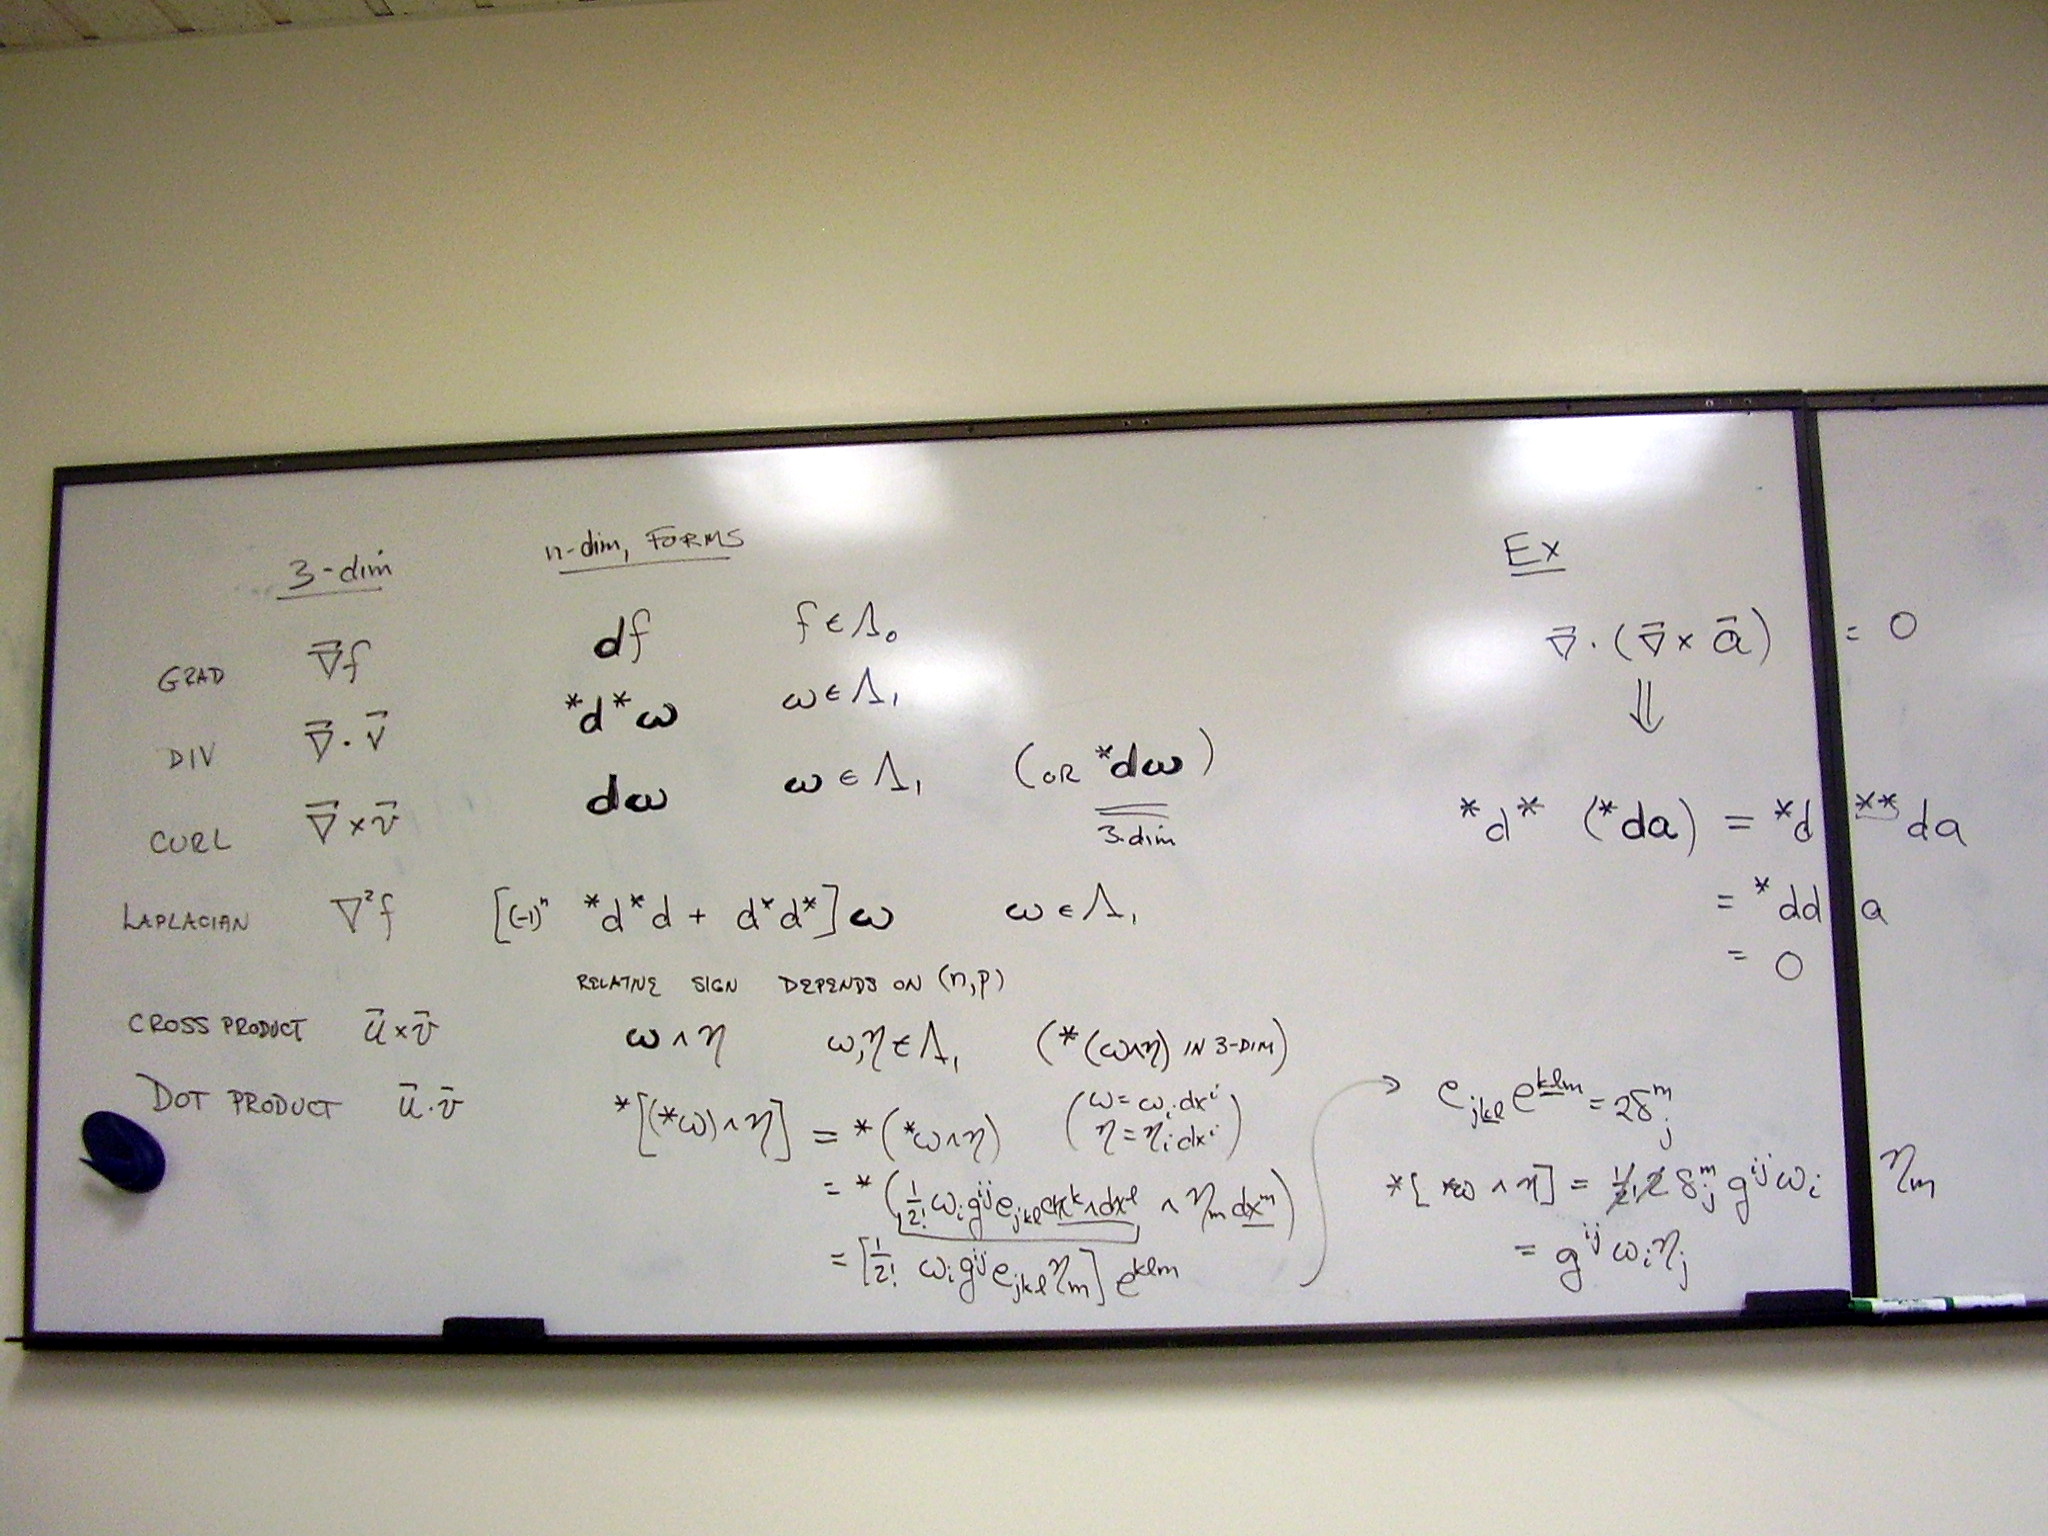 3-dim n-dim, FORMS
GRAD ∇⃗f df f ∈ Λ₀
DIV ∇⃗·v⃗ *d*ω ω ∈ Λ₁
CURL ∇⃗×v⃗ dω ω ∈ Λ₁ (OR *dω)
3-dim
LAPLACIAN ∇²f [(-1)ⁿ *d*d + d*d*]ω ω ∈ Λ₁
RELATIVE SIGN DEPENDS ON (n,p)
CROSS PRODUCT u⃗×v⃗ ω∧η ω,η ∈ Λ₁ (*(ω∧η) IN 3-DIM)
DOT PRODUCT u⃗·v⃗ *[(*ω)∧η] = *(*ω∧η) (ω = ωᵢdxⁱ
η = ηᵢdxⁱ)
= *(1/2! ωᵢ g^{ij} e_{jkl} dx^k∧dx^l ∧ η_m dx^m)
= [1/2! ωᵢ g^{ij} e_{jkl} η_m] e^{klm}
Ex
∇⃗·(∇⃗×a⃗) = 0
⇓
*d* (*da) = *d **da
= *dd a
= 0
→ e_{jkl} e^{klm} = 2δ^m_j
*[*ω∧η] = 1/2! 2 δ^m_j g^{ij} ωᵢ η_m
= g^{ij} ωᵢ η_j